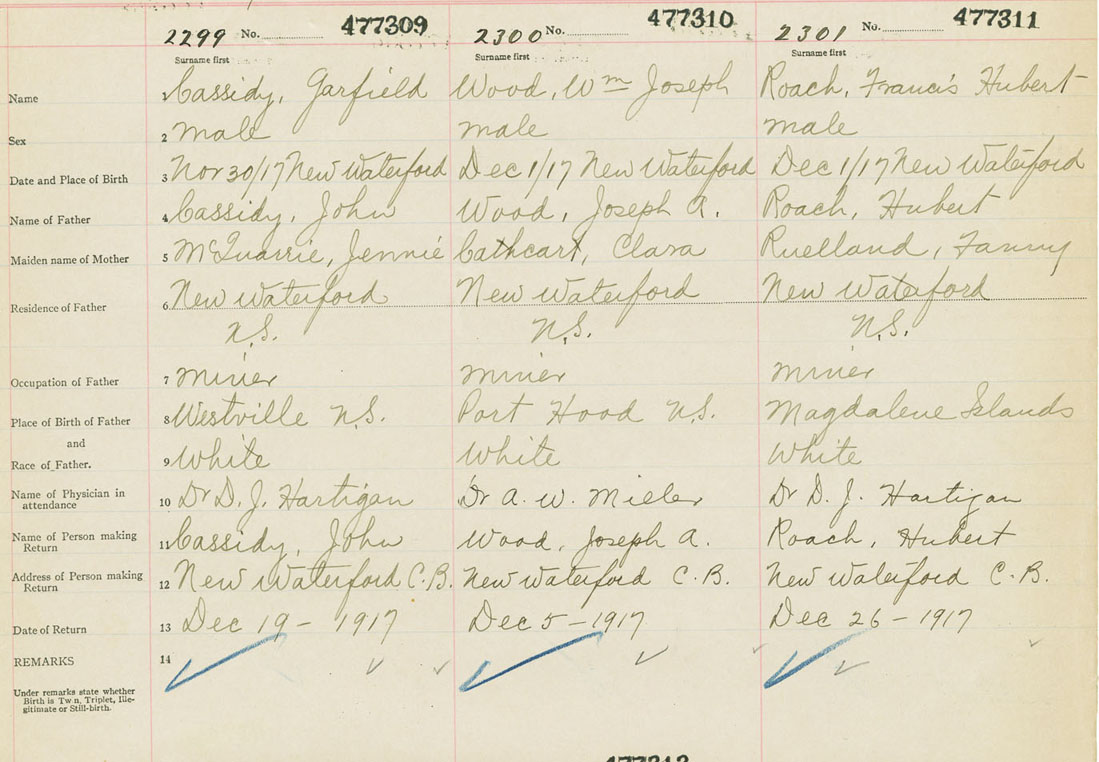 2299 No. 477309 2300 No. 477310 2301 No. 477311
Surname first Surname first Surname first
Name 1 Cassidy, Garfield Wood, Wm Joseph Roach, Francis Hubert
Sex 2 male male male
Date and Place of Birth 3 Nov 30/17 New Waterford Dec 1/17 New Waterford Dec 1/17 New Waterford
Name of Father 4 Cassidy, John Wood, Joseph A. Roach, Hubert
Maiden name of Mother 5 McQuarrie, Jennie Cathcart, Clara Ruelland, Fanny
Residence of Father 6 New Waterford New Waterford New Waterford
N.S. N.S. N.S.
Occupation of Father 7 miner miner miner
Place of Birth of Father 8 Westville N.S. Port Hood N.S. Magdalene Islands
and
Race of Father. 9 White White White
Name of Physician in attendance 10 Dr D. J. Hartigan Dr A. W. Miller Dr D. J. Hartigan
Name of Person making Return 11 Cassidy, John Wood, Joseph A. Roach, Hubert
Address of Person making Return 12 New Waterford C.B. New Waterford C.B. New Waterford C.B.
Date of Return 13 Dec 19 - 1917 Dec 5 - 1917 Dec 26 - 1917
REMARKS 14
Under remarks state whether
Birth is Twin, Triplet, Ille-
gitimate or Still-birth.